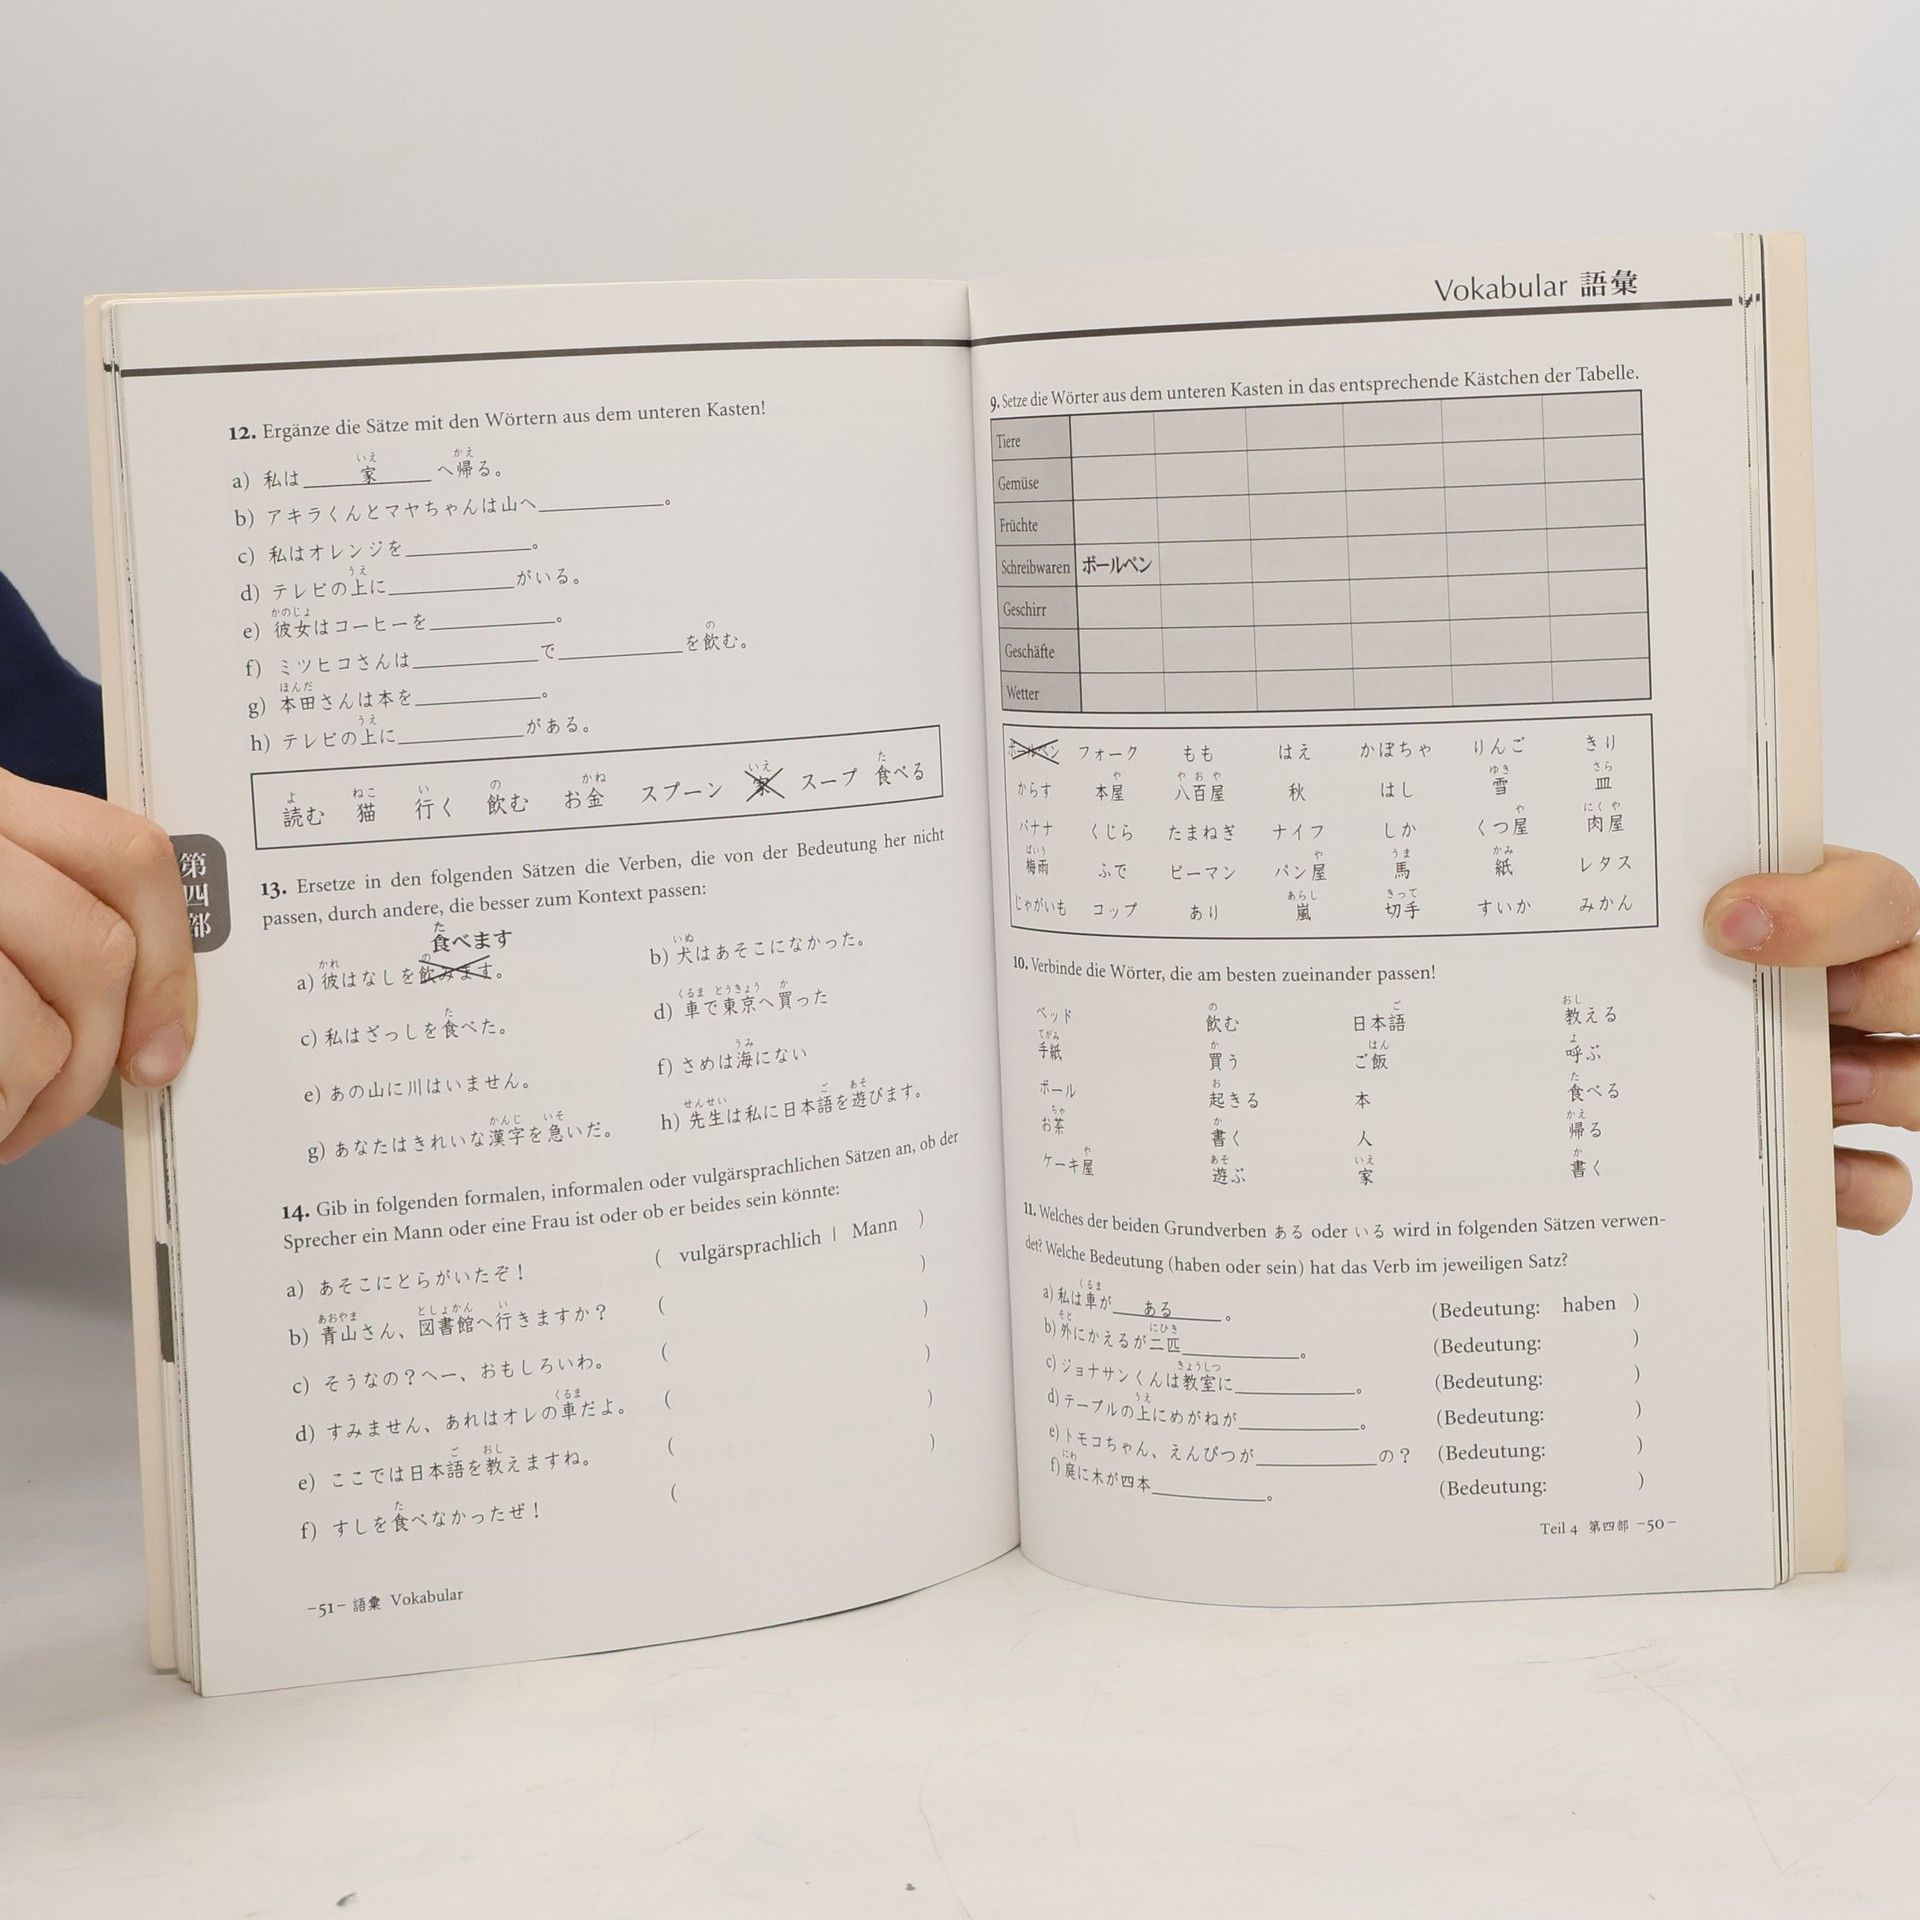 12. Ergänze die Sätze mit den Wörtern aus dem unteren Kasten!
いえ かえ
a) 私は 家 へ帰る。
b) アキラくんとマヤちゃんは山へ____________。
c) 私はオレンジを____________。
うえ
d) テレビの上に____________がいる。
かのじょ
e) 彼女はコーヒーを____________。
の
f) ミツヒコさんは____________で____________を飲む。
ほんだ
g) 本田さんは本を____________。
うえ
h) テレビの上に____________がある。
よ ねこ い の かね いえ た
読む 猫 行く 飲む お金 スプーン 家 スープ 食べる
第四部
13. Ersetze in den folgenden Sätzen die Verben, die von der Bedeutung her nicht
passen, durch andere, die besser zum Kontext passen:
た
食べます
かれ の
a) 彼はなしを飲みます。
いぬ
b) 犬はあそこになかった。
た
c) 私はざっしを食べた。
くるま とうきょう か
d) 車で東京へ買った
e) あの山に川はいません。
うみ
f) さめは海にない
かんじ いそ
g) あなたはきれいな漢字を急いだ。
せんせい ご あそ
h) 先生は私に日本語を遊びます。
14. Gib in folgenden formalen, informalen oder vulgärsprachlichen Sätzen an, ob der
Sprecher ein Mann oder eine Frau ist oder ob er beides sein könnte:
a) あそこにとらがいたぞ！ ( vulgärsprachlich | Mann )
あおやま としょかん い
b) 青山さん、図書館へ行きますか？ ( )
c) そうなの？へー、おもしろいわ。 ( )
くるま
d) すみません、あれはオレの車だよ。 ( )
ご おし
e) ここでは日本語を教えますね。 ( )
た
f) すしを食べなかったぜ！ ( )
–51– 語彙 Vokabular
Vokabular 語彙
9. Setze die Wörter aus dem unteren Kasten in das entsprechende Kästchen der Tabelle.
Tiere
Gemüse
Früchte
Schreibwaren ボールペン
Geschirr
Geschäfte
Wetter
ボールペン フォーク もも はえ かぼちゃ りんご きり
や やおや ゆき さら
からす 本屋 八百屋 秋 はし 雪 皿
や にくや
バナナ くじら たまねぎ ナイフ しか くつ屋 肉屋
ばいう や うま かみ
梅雨 ふで ピーマン パン屋 馬 紙 レタス
あらし きって
じゃがいも コップ あり 嵐 切手 すいか みかん
10. Verbinde die Wörter, die am besten zueinander passen!
の ご おし
ベッド 飲む 日本語 教える
てがみ か はん よ
手紙 買う ご飯 呼ぶ
お た
ボール 起きる 本 食べる
ちゃ か かえ
お茶 書く 人 帰る
や あそ いえ か
ケーキ屋 遊ぶ 家 書く
11. Welches der beiden Grundverben ある oder いる wird in folgenden Sätzen verwen-
det? Welche Bedeutung (haben oder sein) hat das Verb im jeweiligen Satz?
くるま
a) 私は車が ある 。 (Bedeutung: haben )
そと にひき
b) 外にかえるが二匹____________。 (Bedeutung: )
きょうしつ
c) ジョナサンくんは教室に____________。 (Bedeutung: )
うえ
d) テーブルの上にめがねが____________。 (Bedeutung: )
e) トモコちゃん、えんぴつが____________の？ (Bedeutung: )
にわ
f) 庭に木が四本____________。 (Bedeutung: )
Teil 4 第四部 –50–